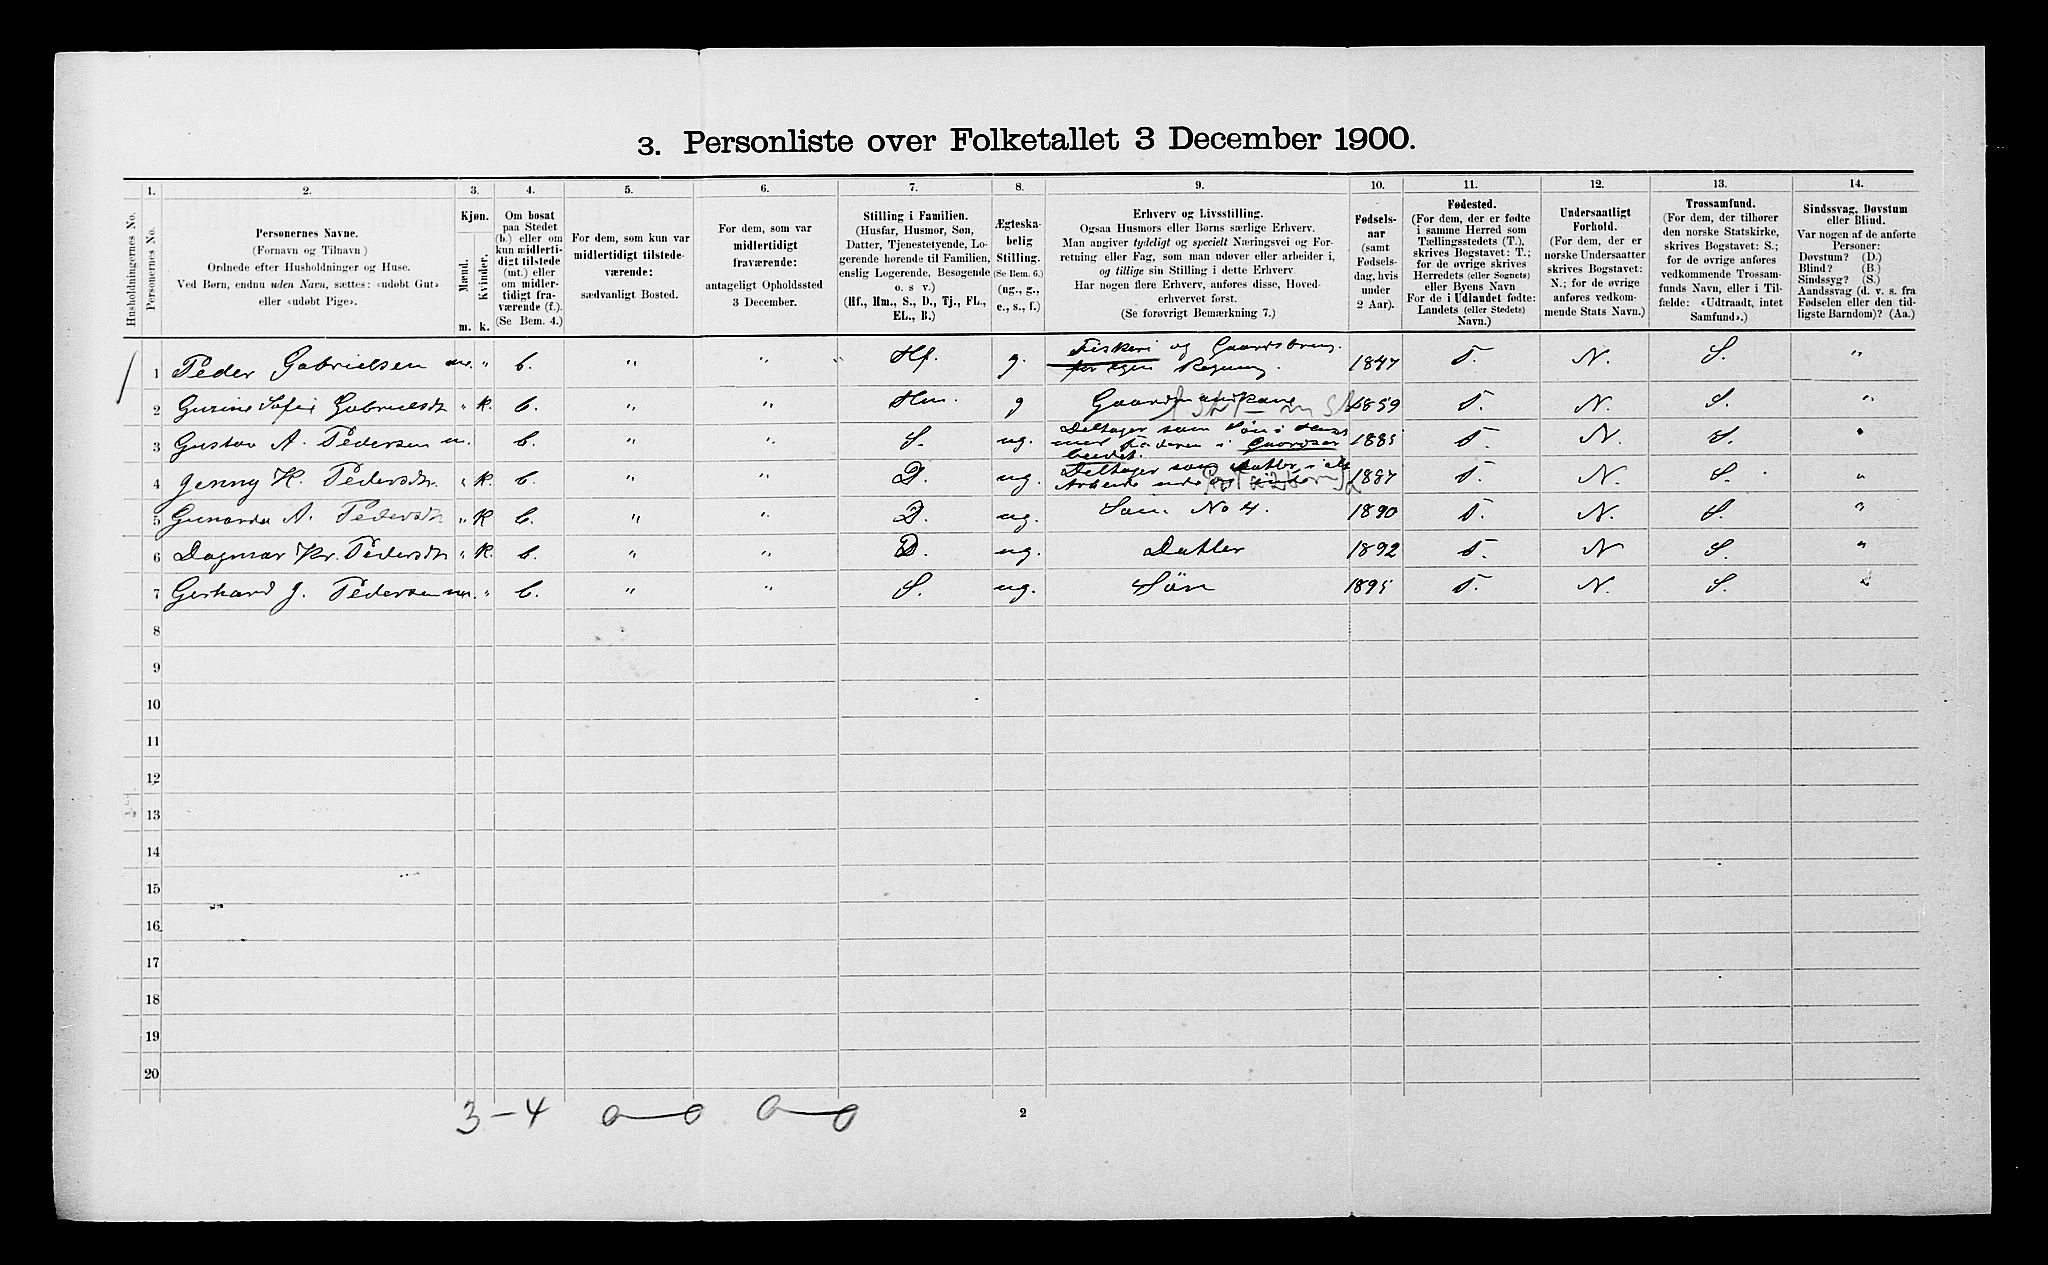 3. Personliste over Folketallet 3 December 1900.
1. 2. 3. 4. 5. 6. 7. 8. 9. 10. 11. 12. 13. 14.
Husholdningernes No.
Personernes No.
Personernes Navne.
(Fornavn og Tilnavn)
Ordnede efter Husholdninger og Huse.
Ved Børn, endnu uden Navn, sættes: «udøbt Gut»
eller «udøbt Pige».
Kjøn.
Mænd.
Kvinder.
m. k.
Om bosat
paa Stedet
(b.) eller om
kun midlerti-
digt tilstede
(mt.) eller
om midler-
tidigt fra-
værende (f.).
(Se Bem. 4.)
For dem, som kun var
midlertidigt tilstede-
værende:
sædvanligt Bosted.
For dem, som var
midlertidigt
fraværende:
antageligt Opholdssted
3 December.
Stilling i Familien.
(Husfar, Husmor, Søn,
Datter, Tjenestetyende, Lo-
gerende hørende til Familien,
enslig Logerende, Besøgende
o. s v.)
(Hf., Hm., S., D., Tj., FL.,
EL., B.)
Ægteska-
belig
Stilling.
(Se Bem. 6.)
(ug., g.,
e., s., f.)
Erhverv og Livsstilling.
Ogsaa Husmors eller Børns særlige Erhverv.
Man angiver tydeligt og specielt Næringsvei og For-
retning eller Fag, som man udøver eller arbeider i,
og tillige sin Stilling i dette Erhverv.
Har nogen flere Erhverv, anføres disse, Hoved-
erhvervet først.
(Se forøvrigt Bemærkning 7.)
Fødsels-
aar
(samt
Fødsels-
dag, hvis
under
2 Aar).
Fødested.
(For dem, der er fødte
i samme Herred som
Tællingsstedets (T.),
skrives Bogstavet: T.;
for de øvrige skrives
Herredets (eller Sognets)
eller Byens Navn
For de i Udlandet fødte:
Landets (eller Stedets)
Navn.)
Undersaatligt
Forhold.
(For dem, der er
norske Undersaatter
skrives Bogstavet:
N.; for de øvrige
anføres vedkom-
mende Stats Navn.)
Trossamfund.
(For dem, der tilhører
den norske Statskirke,
skrives Bogstavet: S.;
for de øvrige anføres
vedkommende Trossam-
funds Navn, eller i Til-
fælde: «Udtraadt, intet
Samfund».)
Sindssvag, Døvstum
eller Blind.
Var nogen af de anførte
Personer:
Døvstum? (D.)
Blind? (B.)
Sindssyg? (S.)
Aandssvag (d. v. s. fra
Fødselen eller den tid-
ligste Barndom)? (Aa.)
1 1 Peder Gabrielsen m. " b. " " Hf. g. Fiskeri og Gaardsbrug for egen Regning. 1847 T. N. S. "
2 Gurine Sofie Gabrielsdtr " k. b. " " Hm. g Gaardmandkone 1859 T. N. S. "
3 Gustav A. Pedersen m. b. " " S. ug. Deltager som Søn i Huset med Faderen i Gaardsarbeidet. 1885 T. N. S. "
4 Jenny K. Pedersdtr. " k. b. " " D. ug. Deltager som Datter i alt Arbeide ude og inde 1887 T. N. S. "
5 Gunarda A. Pedersdtr " k b. " " D. ug. Som No 4. 1890 T. N. S. "
6 Dagmar Kr. Pedersdtr " k. b. " " D. ug. Datter 1892 T. N S. "
7 Gerhard J. Pedersen m. " b. " " S. ug. Søn 1895 T. N. S. "
8
9
10
11
12
13
14
15
16
17
18
19
20
3-4 0-0 0-0
2